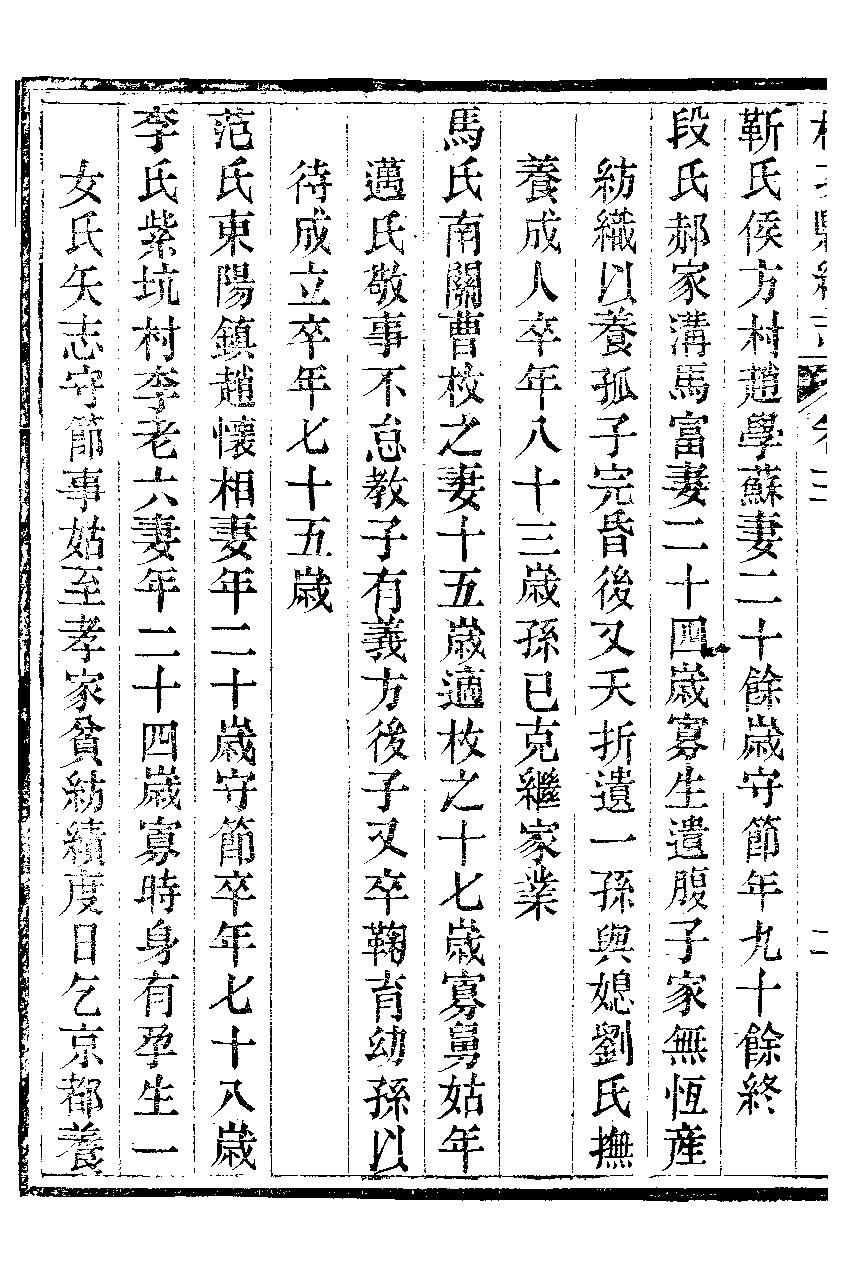 靳氏侯方村趙學蘇妻二十餘歲守節年九十餘終
段氏郝家溝馬富妻二十四歲寡生遺腹子家無恆産
紡織以養孤子完昏後又夭折遺一孫與媳劉氏撫
養成人卒年八十三歲孫已克繼家業
馬氏南關曹枚之妻十五歲適枚之十七歲寡舅姑年
邁氏敬事不怠教子有義方後子又卒鞠育幼孫以
待成立卒年七十五歲
范氏東陽鎮趙懷相妻年二十歲守節卒年七十八歲
李氏紫坑村李老六妻年二十四歲寡時身有孕生一
女氏矢志守節事姑至孝家貧紡績度日乞京都養